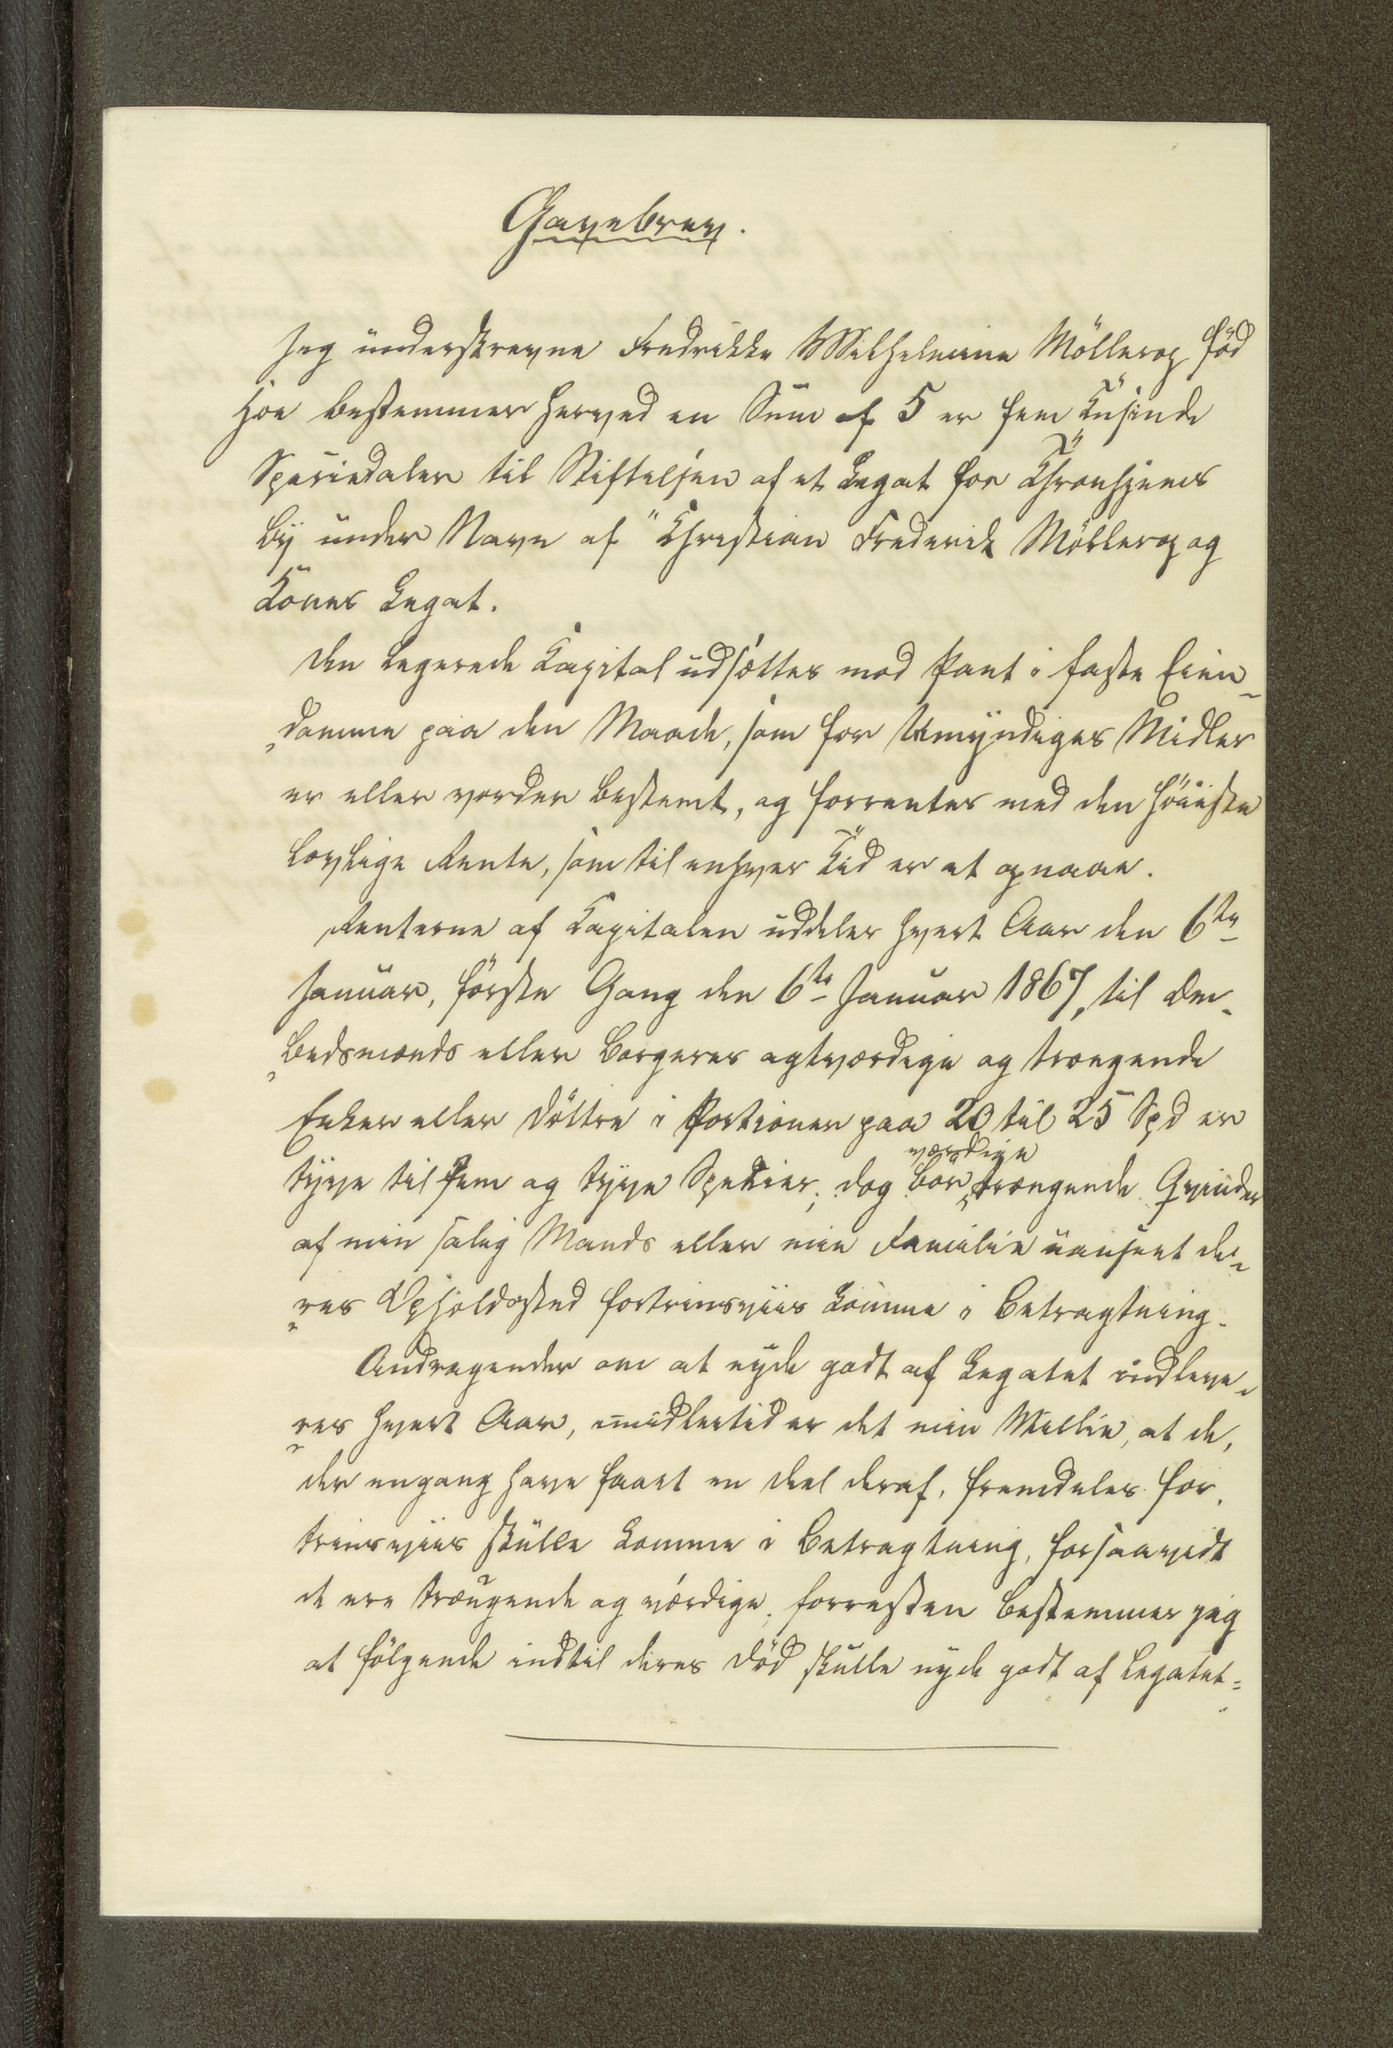 Gavebrev.
Jeg underskrevne Fredrikke Wilhelmine Möllerop föd
Hoe bestemmer herved en Sum af 5 er fem Tusinde
Speciedaler til Stiftelsen af et Legat for Thronhjems
By under Navn af "Christian Frederik Möllerop og
Kones Legat.
Den legerede Kapital udsættes mod Pant i faste Eien-
domme paa den Maade, som for Umyndiges Midler
er eller vorder bestemt, og forrentes med den höieste
lovlige Rente, som til enhver Tid er at opnaae.
Renterne af Kapitalen uddeles hvert Aar den 6te
Januar, förste Gang den 6te Januar 1867, til Em-
bedsmænds eller Borgeres agtværdige og trængende
Enker eller Döttre i Portioner paa 20 til 25 Spd er
tyve til fem og tyve Specier, dog bör værdige trængende Qvinder
af min salig Mands eller min Familie uanseet de-
res Opholdssted fortrinsviis komme i Betragtning.
Andragender om at nyde godt af Legatet indleve-
res hvert Aar, imidlertid er det min Villie, at de,
der engang have faaet en Deel deraf, fremdeles for-
trinsviis skulle komme i Betragtning, forsaavidt
de ere trængende og værdige, forresten bestemmer jeg
at fölgende indtil deres Död skulle nyde godt af Legatet.